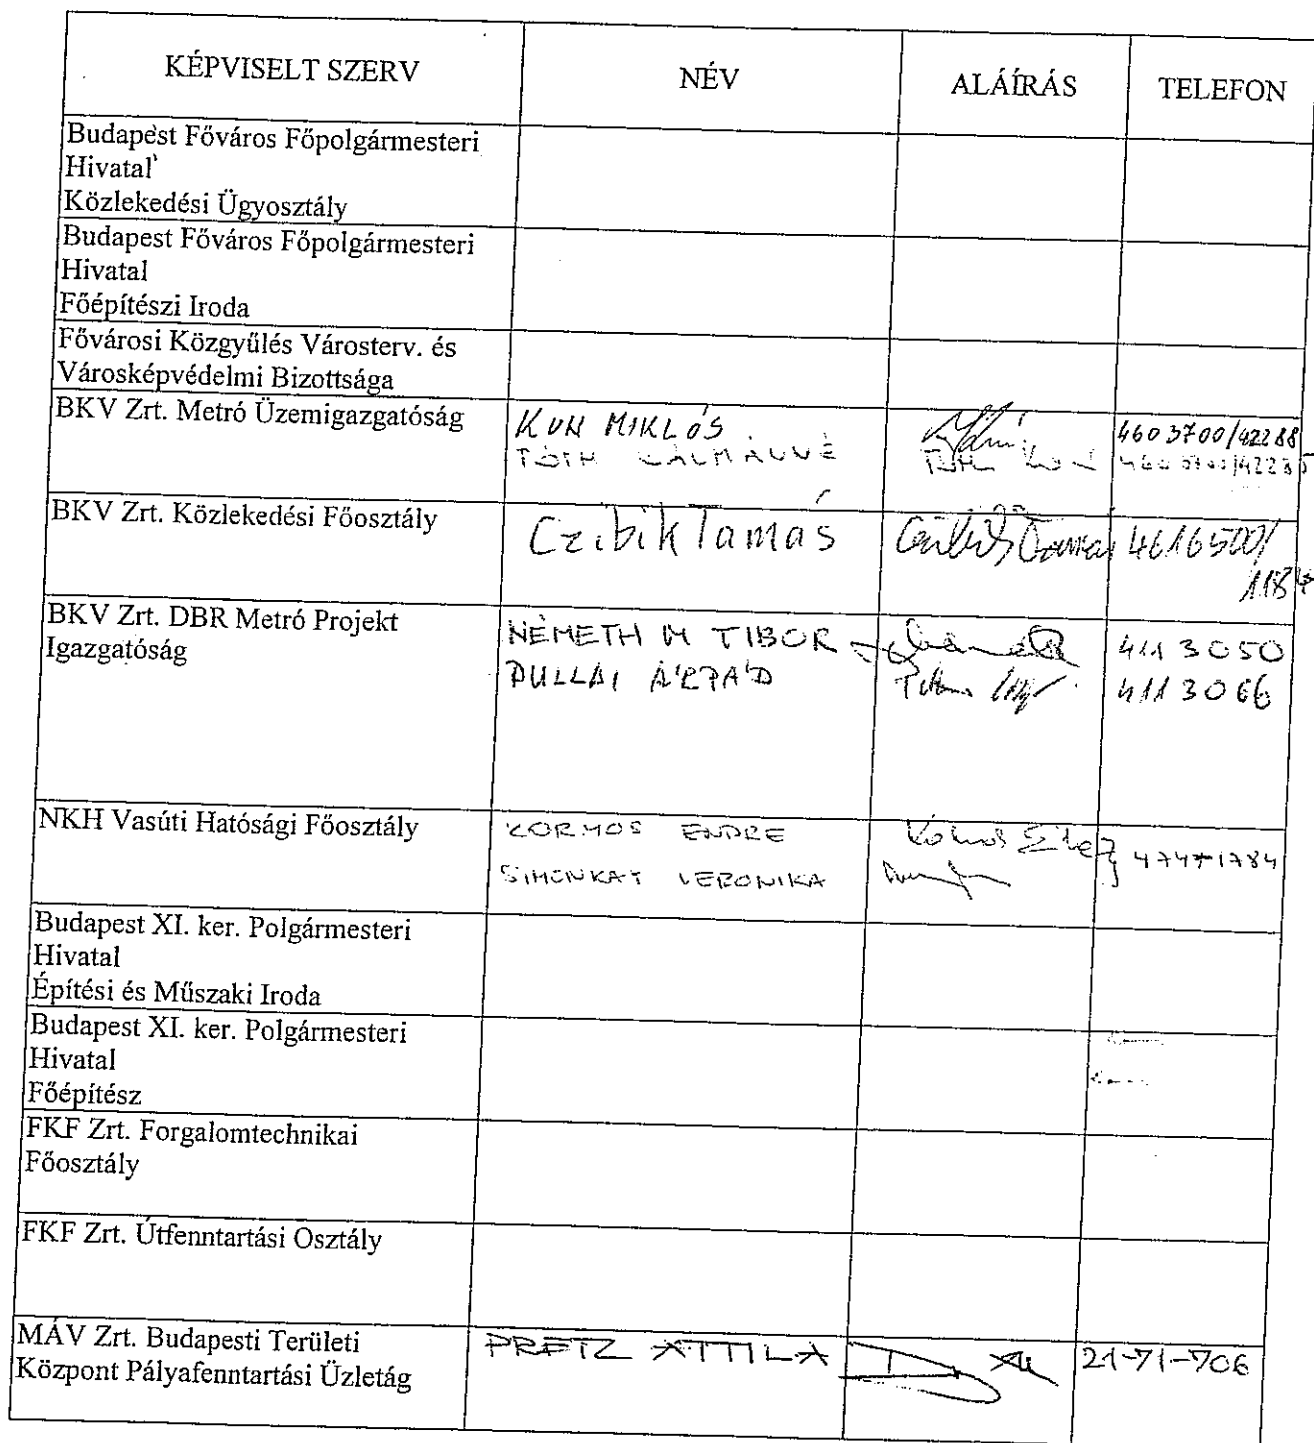 KÉPVISELT SZERV NÉV ALÁÍRÁS TELEFON
Budapest Főváros Főpolgármesteri
Hivatal
Közlekedési Ügyosztály
Budapest Főváros Főpolgármesteri
Hivatal
Főépítészi Iroda
Fővárosi Közgyűlés Városterv. és
Városképvédelmi Bizottsága
BKV Zrt. Metró Üzemigazgatóság KUN MIKLÓS 4603700/42288
TÓTH KÁLMÁNNÉ
BKV Zrt. Közlekedési Főosztály Czibik Tamás Czibik Tamás 4616500/
BKV Zrt. DBR Metró Projekt
Igazgatóság
NÉMETH M TIBOR 411 3050
PULLAI ÁRPÁD 411 3066
NKH Vasúti Hatósági Főosztály KORMOS ENDRE
SIMONKAY VERONIKA
Budapest XI. ker. Polgármesteri
Hivatal
Építési és Műszaki Iroda
Budapest XI. ker. Polgármesteri
Hivatal
Főépítész
FKF Zrt. Forgalomtechnikai
Főosztály
FKF Zrt. Útfenntartási Osztály
MÁV Zrt. Budapesti Területi PRETZ ATTILA 21-71-706
Központ Pályafenntartási Üzletág